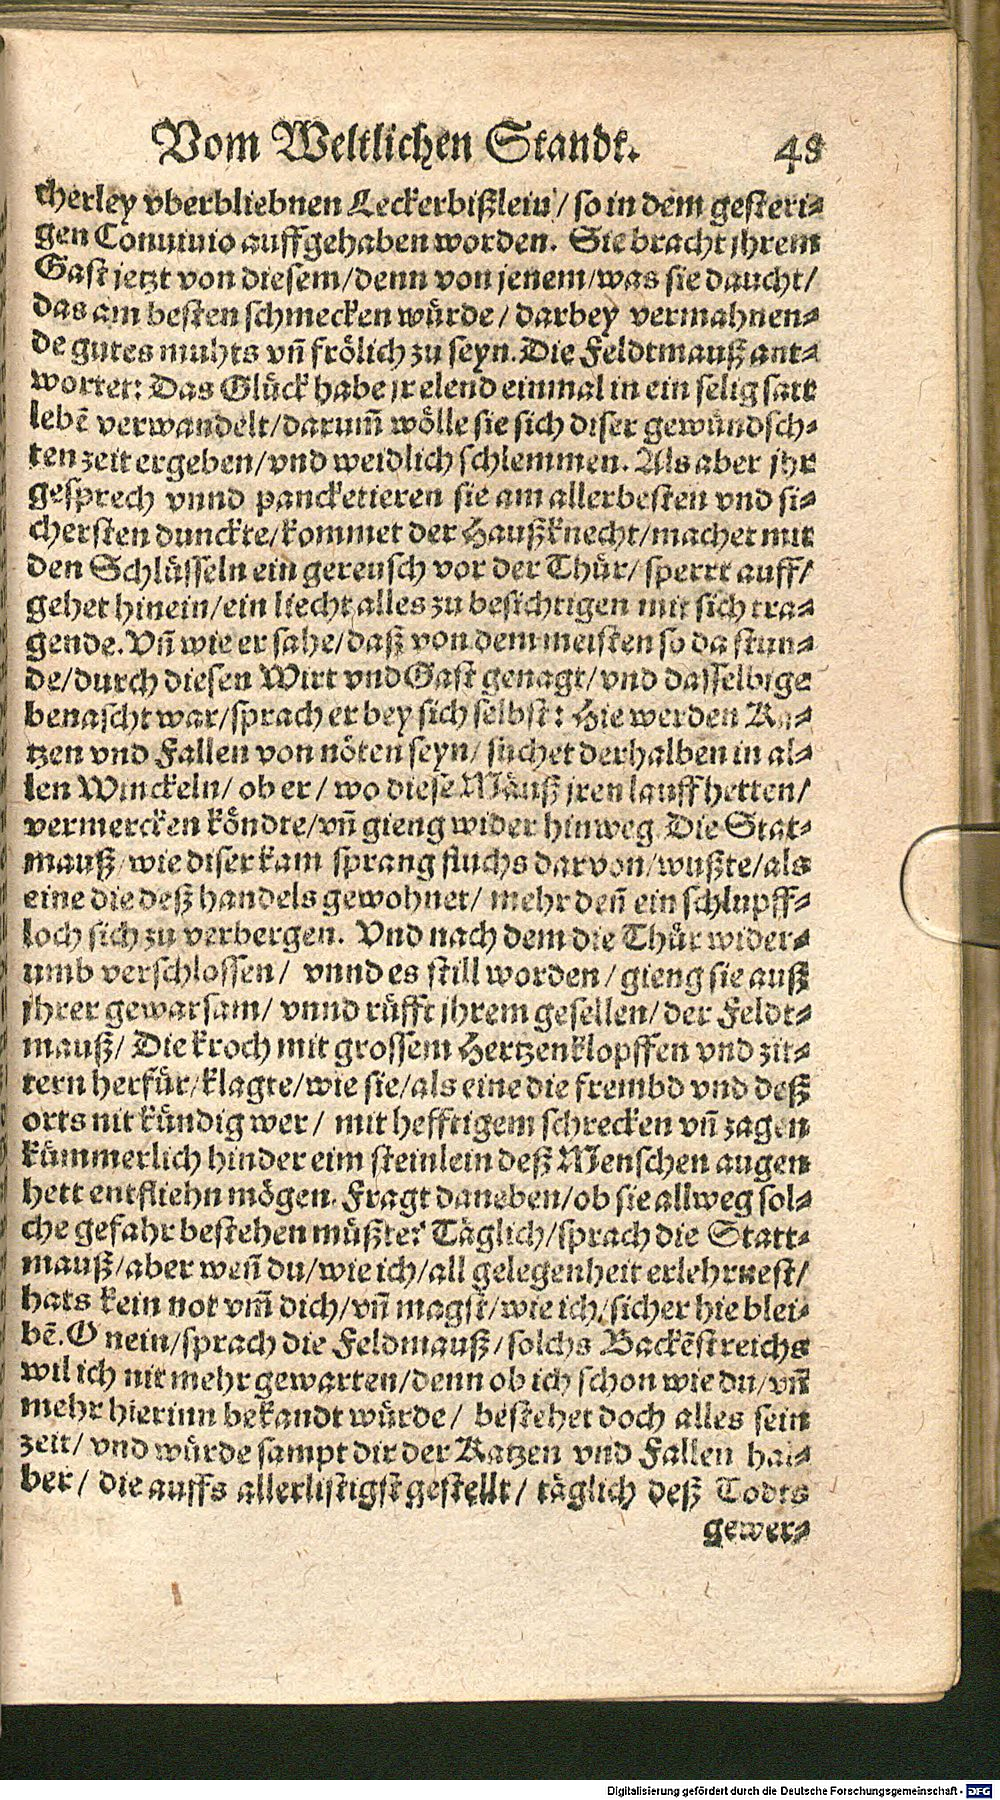 Vom Weltlichen Standt. 48
cherley vberbliebnen Leckerbißlein / so in dem gesteri⸗
gen Conuiuio auffgehaben worden. Sie bracht jhrem
Gast jetzt von diesem/denn von jenem/was sie daucht/
das am besten schmecken würde / darbey vermahnen⸗
de gutes muhts vñ frölich zu seyn. Die Feldtmauß ant⸗
wortet: Das Glück habe jr elend einmal in ein selig satt
lebẽ verwandelt/darum̃ wölle sie sich diser gewündsch⸗
ten zeit ergeben/vnd weidlich schlemmen. Als aber jhr
gesprech vnnd pancketieren sie am allerbesten vnd si⸗
chersten dunckte/kommet der Haußknecht/machet mit
den Schlüsseln ein gereusch vor der Thür/ sperrt auff/
gehet hinein/ein liecht alles zu besichtigen mit sich tra⸗
gende. Vñ wie er sahe/daß von dem meisten so da stun⸗
de/durch diesen Wirt vnd Gast genagt/vnd dasselbige
benascht war/sprach er bey sich selbst: Hie werden Ka⸗
tzen vnd Fallen von nöten seyn/ suchet derhalben in al⸗
len Winckeln/ ob er / wo diese Mäuß jren lauff hetten/
vermercken köndte/vñ gieng wider hinweg. Die Stat⸗
mauß/wie diser kam sprang fluchs darvon/wußte/als
eine die deß handels gewohnet/ mehr deñ ein schlupff⸗
loch sich zu verbergen. Vnd nach dem die Thür wider⸗
umb verschlossen/ vnnd es still worden / gieng sie auß
jhrer gewarsam/ vnnd rüfft jhrem gesellen/ der Feldt⸗
mauß/ Die kroch mit grossem Hertzenklopffen vnd zit⸗
tern herfür/klagte/wie sie/als eine die frembd vnd deß
orts nit kündig wer / mit hefftigem schrecken vñ zagen
kümmerlich hinder eim steinlein deß Menschen augen
hett entfliehn mögen. Fragt daneben/ob sie allweg sol⸗
che gefahr bestehen müßte? Täglich/sprach die Statt⸗
mauß/aber weñ du/wie ich/all gelegenheit erlehrnest/
hats kein not vm̃ dich/vñ magst/wie ich/sicher hie blei⸗
bẽ. O nein/sprach die Feldmauß/solchs Backẽstreichs
wil ich nit mehr gewarten/denn ob ich schon wie du/vñ
mehr hierinn bekandt würde / bestehet doch alles sein
zeit/ vnd würde sampt dir der Katzen vnd Fallen hal⸗
ber / die auffs allerlistigst gestellt / täglich deß Todts
gewer⸗
Digitalisierung gefördert durch die Deutsche Forschungsgemeinschaft - DFG